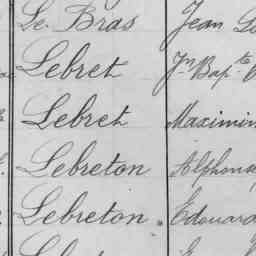 Le Bras Jean
Lebret Jn Bapte
Lebret Maximin
Lebreton Alphonse
Lebreton. Edouard